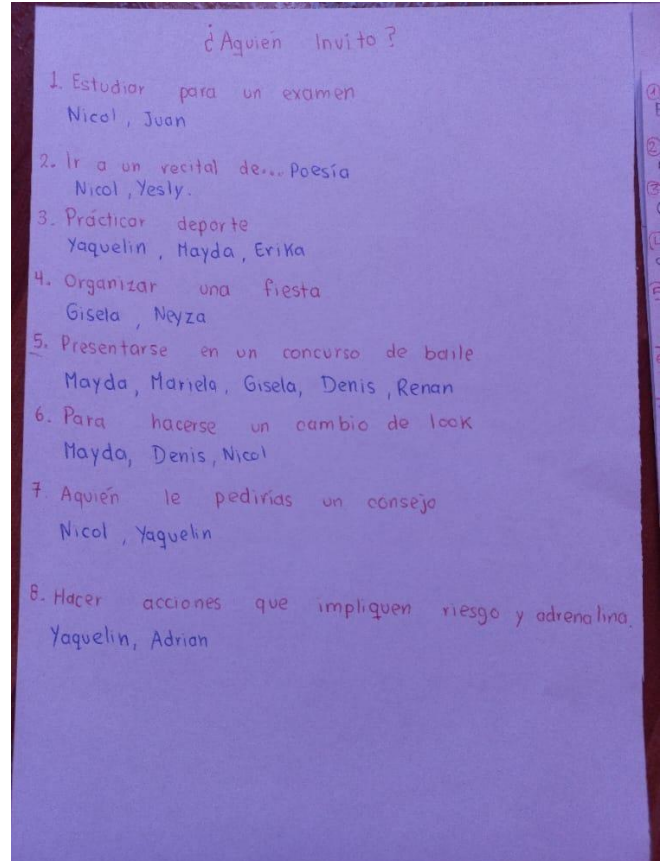 ¿Aquién Invito?
1. Estudiar para un examen
Nicol, Juan
2. Ir a un recital de... Poesía
Nicol, Yesly.
3. Prácticar deporte
Yaquelin, Mayda, Erika
4. Organizar una fiesta
Gisela, Neyza
5. Presentarse en un concurso de baile
Mayda, Mariela, Gisela, Denis, Renan
6. Para hacerse un cambio de look
Mayda, Denis, Nicol
7 Aquién le pedirías un consejo
Nicol, Yaquelin
8. Hacer acciones que impliquen riesgo y adrenalina.
Yaquelin, Adrian